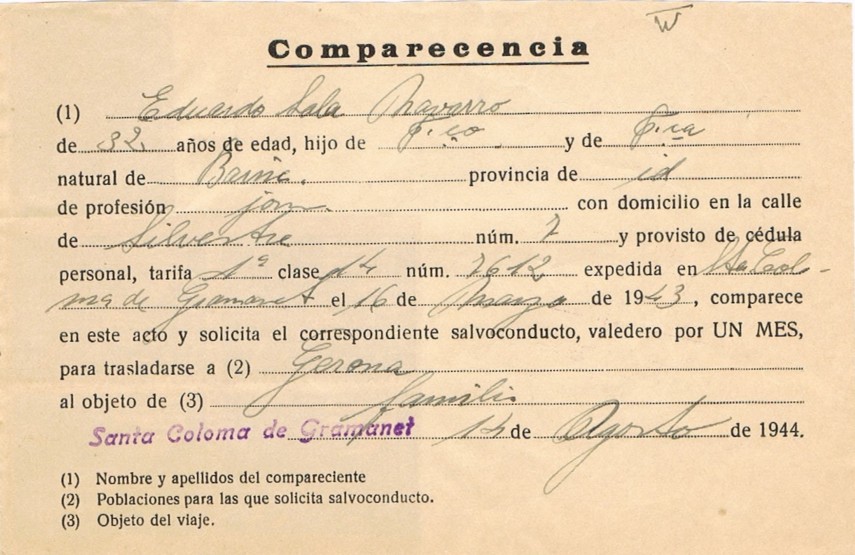 Comparecencia
(1) Eduardo Sala Navarro
de 32 años de edad, hijo de F.co y de F.ca
natural de Barna. provincia de id
de profesión jor. con domicilio en la calle
de Silvestre núm. 7 y provisto de cédula
personal, tarifa 1ª clase 14 núm. 7612 expedida en Sta Colo-
ma de Gramanet el 16 de Marzo de 1943, comparece
en este acto y solicita el correspondiente salvoconducto, valedero por UN MES,
para trasladarse a (2) Gerona
al objeto de (3) familia
Santa Coloma de Gramanet 14 de Agosto de 1944.
(1) Nombre y apellidos del compareciente
(2) Poblaciones para las que solicita salvoconducto.
(3) Objeto del viaje.